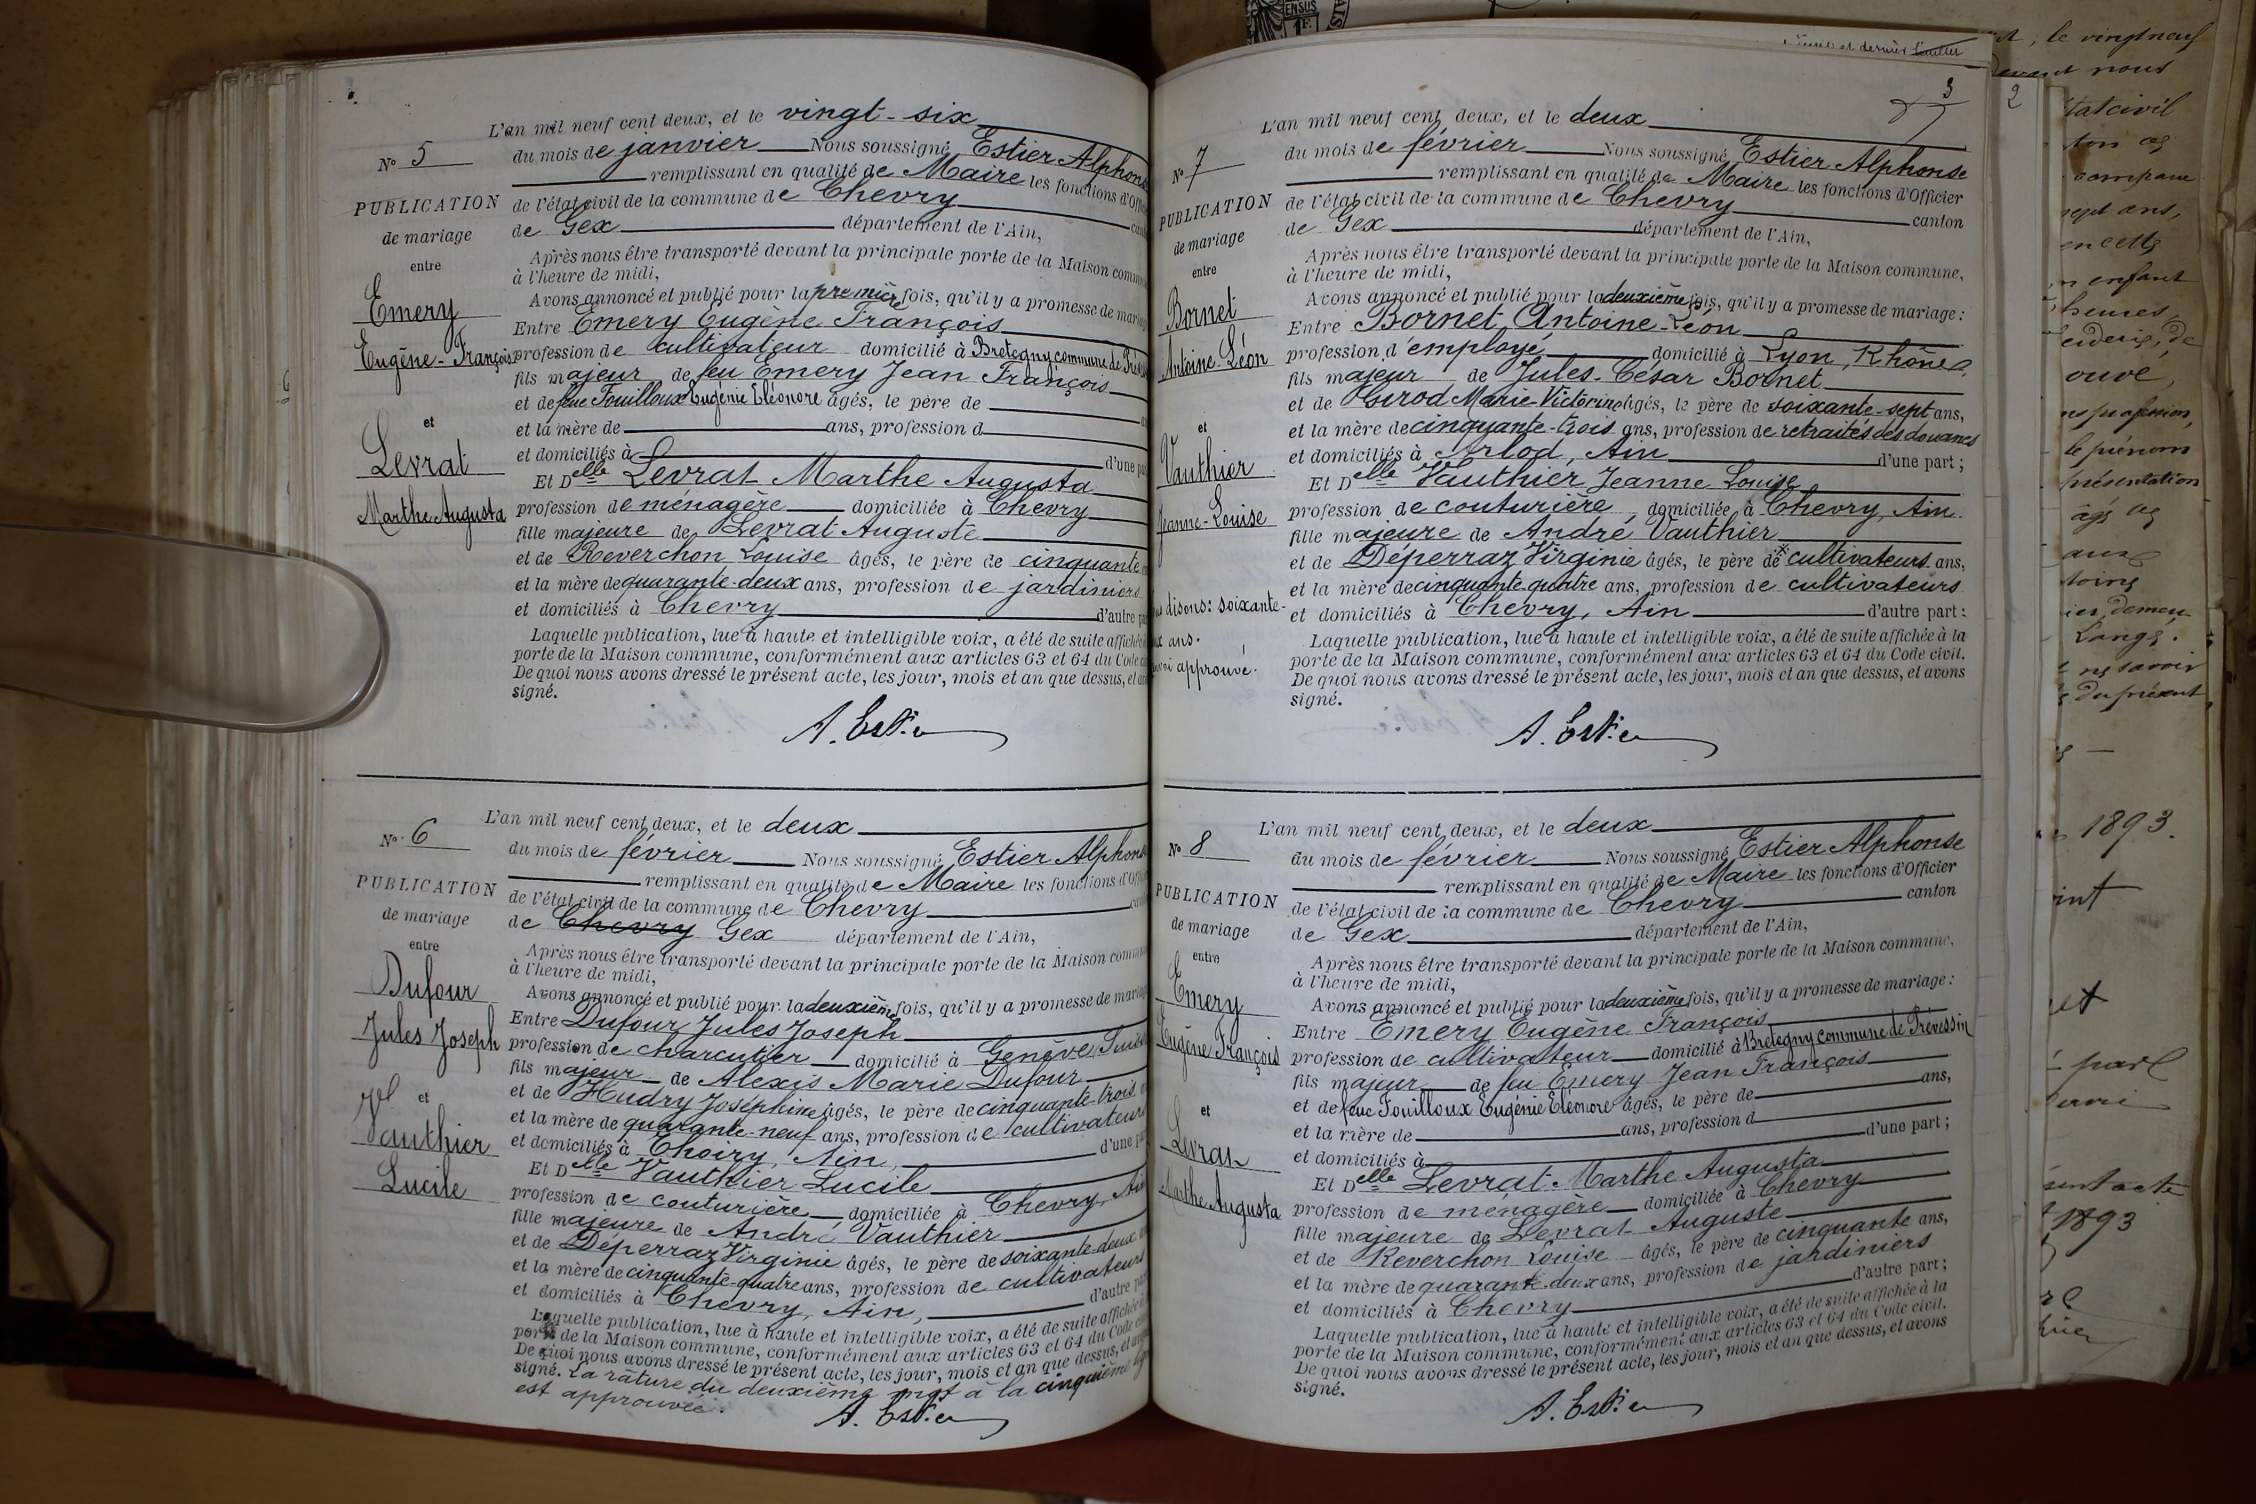 L'an mil neuf cent deux, et le vingt-six
du mois de janvier Nous soussigné Estier Alphons
remplissant en qualité de Maire les fonctions d'Offi
de l'état civil de la commune de Chevry
de Gex département de l'Ain,
Après nous être transporté devant la principale porte de la Maison commu
à l'heure de midi,
Avons annoncé et publié pour la première fois, qu'il y a promesse de maria
Entre Emery Eugène François
profession de cultivateur domicilié à Bretegny commune de Prév
fils majeur de feu Emery Jean François
et de feue Fouilloux Eugénie Eléonore âgés, le père de
et la mère de ans, profession d
et domiciliés à d'une pa
Et Delle Levrat Marthe Augusta
profession de ménagère domiciliée à Chevry
fille majeure de Levrat Auguste
et de Reverchon Louise âgés, le père de cinquante
et la mère de quarante-deux ans, profession de jardiniers
et domiciliés à Chevry d'autre pa
Laquelle publication, lue à haute et intelligible voix, a été de suite affichée
porte de la Maison commune, conformément aux articles 63 et 64 du Code
De quoi nous avons dressé le présent acte, les jour, mois et an que dessus, et
signé.
A. Estier
No 5
PUBLICATION
de mariage
entre
Emery
Eugène-François
et
Levrat
Marthe Augusta
L'an mil neuf cent deux, et le deux
du mois de février Nous soussigné Estier Alphons
remplissant en qualité de Maire les fonctions d'Offi
de l'état civil de la commune de Chevry
de Chevry Gex département de l'Ain,
Après nous être transporté devant la principale porte de la Maison commu
à l'heure de midi,
Avons annoncé et publié pour la deuxième fois, qu'il y a promesse de maria
Entre Dufour Jules Joseph
profession de charcutier domicilié à Genève, Suisse
fils majeur de Alexis Marie Dufour
et de Hudry Joséphine âgés, le père de cinquante-trois
et la mère de quarante-neuf ans, profession de cultivateurs
et domiciliés à Thoiry, Ain, d'une pa
Et Delle Vauthier Lucile
profession de couturière domiciliée à Chevry, Ain
fille majeure de André Vauthier
et de Déperraz Virginie âgés, le père de soixante-deux
et la mère de cinquante-quatre ans, profession de cultivateurs
et domiciliés à Chevry, Ain, d'autre pa
Laquelle publication, lue à haute et intelligible voix, a été de suite affichée
porte de la Maison commune, conformément aux articles 63 et 64 du Code
De quoi nous avons dressé le présent acte, les jour, mois et an que dessus, et
signé. La râture du deuxième mot à la cinquième
est approuvée.
A. Estier
No 6
PUBLICATION
de mariage
entre
Dufour
Jules Joseph
et
Vauthier
Lucile
3
L'an mil neuf cent deux, et le deux
du mois de février Nous soussigné Estier Alphonse
remplissant en qualité de Maire les fonctions d'Officier
de l'état civil de la commune de Chevry canton
de Gex département de l'Ain,
Après nous être transporté devant la principale porte de la Maison commune,
à l'heure de midi,
Avons annoncé et publié pour la deuxième fois, qu'il y a promesse de mariage :
Entre Bornet Antoine-Léon
profession d'employé domicilié à Lyon, Rhône
fils majeur de Jules-César Bornet
et de Girod Marie-Victorine âgés, le père de soixante-sept ans,
et la mère de cinquante-trois ans, profession de retraités des douanes
et domiciliés à Arlod, Ain d'une part ;
Et Delle Vauthier Jeanne Louise
profession de couturière domiciliée à Chevry, Ain
fille majeure de André Vauthier
et de Déperraz Virginie âgés, le père de cultivateurs ans,
et la mère de cinquante quatre ans, profession de cultivateurs
et domiciliés à Chevry, Ain d'autre part :
Laquelle publication, lue à haute et intelligible voix, a été de suite affichée à la
porte de la Maison commune, conformément aux articles 63 et 64 du Code civil.
De quoi nous avons dressé le présent acte, les jour, mois et an que dessus, et avons
signé.
A. Estier
No 7
PUBLICATION
de mariage
entre
Bornet
Antoine-Léon
et
Vauthier
Jeanne-Louise
disons: soixante-
ans.
approuvé.
L'an mil neuf cent deux, et le deux
du mois de février Nous soussigné Estier Alphonse
remplissant en qualité de Maire les fonctions d'Officier
de l'état civil de la commune de Chevry canton
de Gex département de l'Ain,
Après nous être transporté devant la principale porte de la Maison commune,
à l'heure de midi,
Avons annoncé et publié pour la deuxième fois, qu'il y a promesse de mariage :
Entre Emery Eugène François
profession de cultivateur domicilié à Bretegny commune de Prévessin
fils majeur de feu Emery Jean François
et de feue Fouilloux Eugénie Eléonore âgés, le père de ans,
et la mère de ans, profession d
et domiciliés à d'une part ;
Et Delle Levrat Marthe Augusta
profession de ménagère domiciliée à Chevry
fille majeure de Levrat Auguste
et de Reverchon Louise âgés, le père de cinquante ans,
et la mère de quarante-deux ans, profession de jardiniers
et domiciliés à Chevry d'autre part ;
Laquelle publication, lue à haute et intelligible voix, a été de suite affichée à la
porte de la Maison commune, conformément aux articles 63 et 64 du Code civil.
De quoi nous avons dressé le présent acte, les jour, mois et an que dessus, et avons
signé.
A. Estier
No 8
PUBLICATION
de mariage
entre
Emery
Eugène François
et
Levrat
Marthe Augusta
et dernier feuillet
2
le vingt neuf
nous
ans,
enfant
heures,
le prénom
présentation
savoir
du présent
1893.
1893